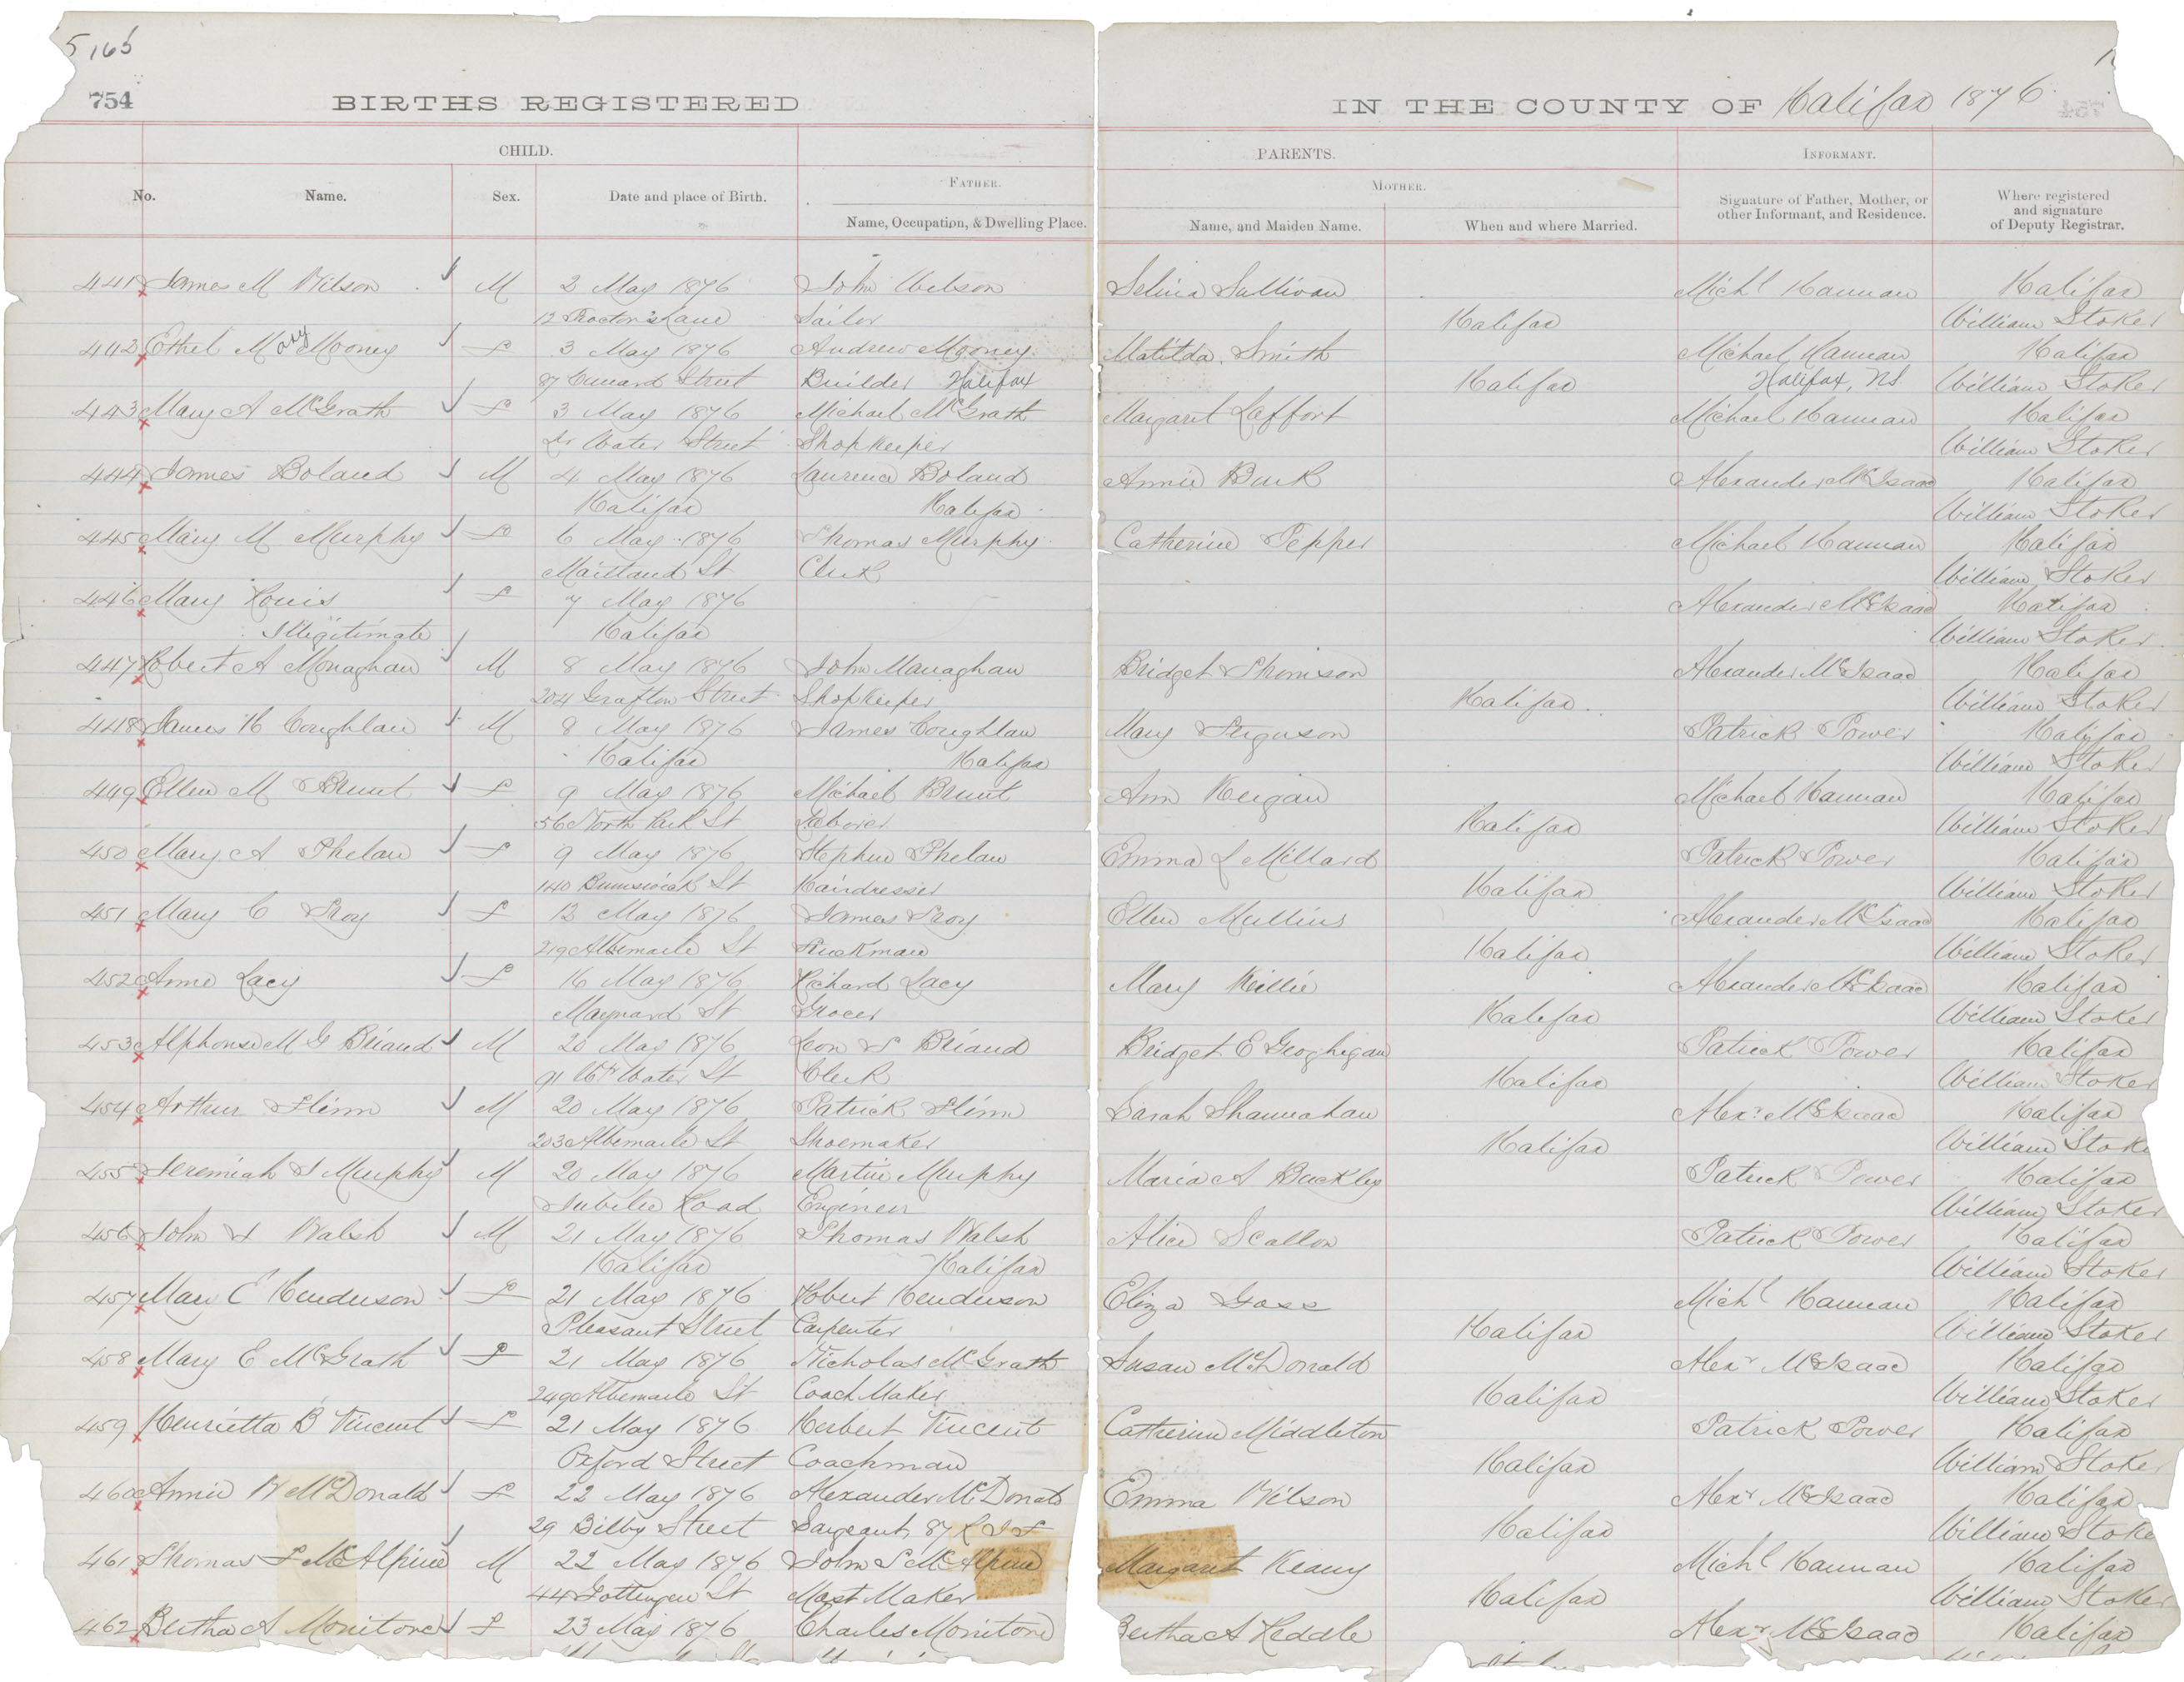 5,165
754
BIRTHS REGISTERED IN THE COUNTY OF Halifax 1876
CHILD. PARENTS. INFORMANT.
No. Name. Sex. Date and place of Birth. FATHER. MOTHER. Signature of Father, Mother, or other Informant, and Residence. Where registered and signature of Deputy Registrar.
Name, Occupation, & Dwelling Place. Name, and Maiden Name. When and where Married.
441 James M Wilson M 3 May 1876 John Wilson Selina Sullivan Michl Hannan Halifax
12 Proctor's Lane Sailor Halifax William Stoker
442 Ethel Mary Mooney F 3 May 1876 Andrew Mooney Matilda Smith Michael Hannan Halifax
87 Cunard Street Builder Halifax Halifax Halifax, NS William Stoker
443 Mary A McGrath F 3 May 1876 Michael McGrath Margaret Laffort Michael Hannan Halifax
Water Street Shopkeeper William Stoker
444 James Boland M 4 May 1876 Laurence Boland Annie Burk Alexander McIsaac Halifax
Halifax Halifax William Stoker
445 Mary M Murphy F 6 May 1876 Thomas Murphy Catherine Pepper Michael Hannan Halifax
Maitland St Clerk William Stoker
446 Mary F 7 May 1876 Alexander McIsaac Halifax
Illegitimate Halifax William Stoker
447 Robert A Monaghan M 8 May 1876 John Monaghan Bridget Thomson Alexander McIsaac Halifax
204 Grafton Street Shopkeeper Halifax William Stoker
448 James H Coughlan M 8 May 1876 James Coughlan Mary Ferguson Patrick Power Halifax
Halifax Halifax William Stoker
449 Ellen M Brunt F 9 May 1876 Michael Brunt Ann Keigan Michael Hannan Halifax
56 North Park St Laborer Halifax William Stoker
450 Mary A Phelan F 9 May 1876 Stephen Phelan Emma L Millard Patrick Power Halifax
140 Brunswick St Hairdresser Halifax William Stoker
451 Mary C Troy F 13 May 1876 James Troy Ellen Mullins Alexander McIsaac Halifax
219 Albemarle St Truckman Halifax William Stoker
452 Anne Lacy F 16 May 1876 Richard Lacy Mary Keillie Alexander McIsaac Halifax
Maynard St Grocer Halifax William Stoker
453 Alphonse M G Briand M 20 May 1876 Leon S Briand Bridget E Geoghigan Patrick Power Halifax
91 Water St Clerk Halifax William Stoker
454 Arthur Flinn M 20 May 1876 Patrick Flinn Sarah Shannahan Alexr McIsaac Halifax
203 Albemarle St Shoemaker Halifax William Stoke
455 Jeremiah J Murphy M 20 May 1876 Martin Murphy Maria A Buckley Patrick Power Halifax
Jubilee Road Engineer William Stoker
456 John Walsh M 21 May 1876 Thomas Walsh Alice Scallon Patrick Power Halifax
Halifax Halifax William Stoker
457 Mary E Henderson F 21 May 1876 Robert Henderson Eliza Goss Michl Hannan Halifax
Pleasant Street Carpenter Halifax William Stoker
458 Mary E McGrath F 21 May 1876 Nicholas McGrath Susan McDonald Alexr McIsaac Halifax
249 Albemarle St Coach Maker Halifax William Stoker
459 Henrietta B Vincent F 21 May 1876 Herbert Vincent Catherine Middleton Patrick Power Halifax
Oxford Street Coachman Halifax William Stoker
460 Annie W McDonald F 22 May 1876 Alexander McDonald Emma Wilson Alexr McIsaac Halifax
29 Bilby Street Sargeant, 87 Halifax William Stoke
461 Thomas F McAlpine M 22 May 1876 John S McAlpine Margaret Keany Michl Hannan Halifax
44 Gottingen St Mast Maker Halifax William Stoker
462 Bertha A Monitone F 23 May 1876 Charles Monitone Bertha A Keddle Alexr McIsaac Halifax